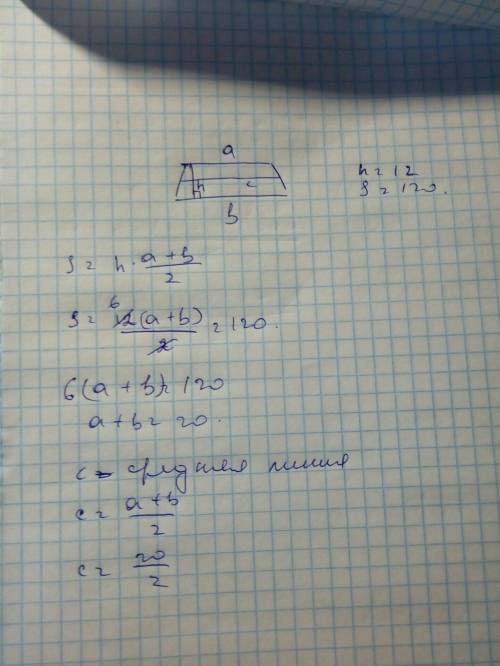 a
h = 12
h c
S = 120.
b
S = h · \frac{a + b}{2}
S = \frac{\cancel{12}^{6}(a + b)}{\cancel{2}} = 120.
6(a + b) = 120
a + b = 20.
c – средняя линия
c = \frac{a + b}{2}
c = \frac{20}{2}